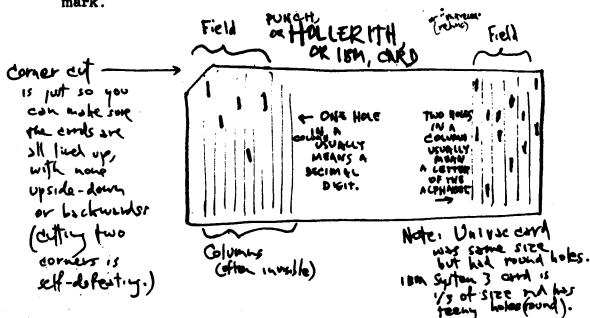 mark.
Field
PUNCH,
or HOLLERITH,
OR IBM, CARD
Field
corner cut
is just so you
can make sure
the cards are
all lined up,
with none
upside-down
or backwards
(cutting two
corners is
self-defeating.)
← ONE HOLE
IN A
COLUMN
USUALLY
MEANS A
DECIMAL
DIGIT.
TWO HOLES
IN A
COLUMN
USUALLY
MEAN
A LETTER
OF THE
ALPHABET
→
Columns
(often invisible)
Note: Univac card
was same size
but had round holes.
IBM System 3 card is
1/3 of size and has
teeny holes (round).